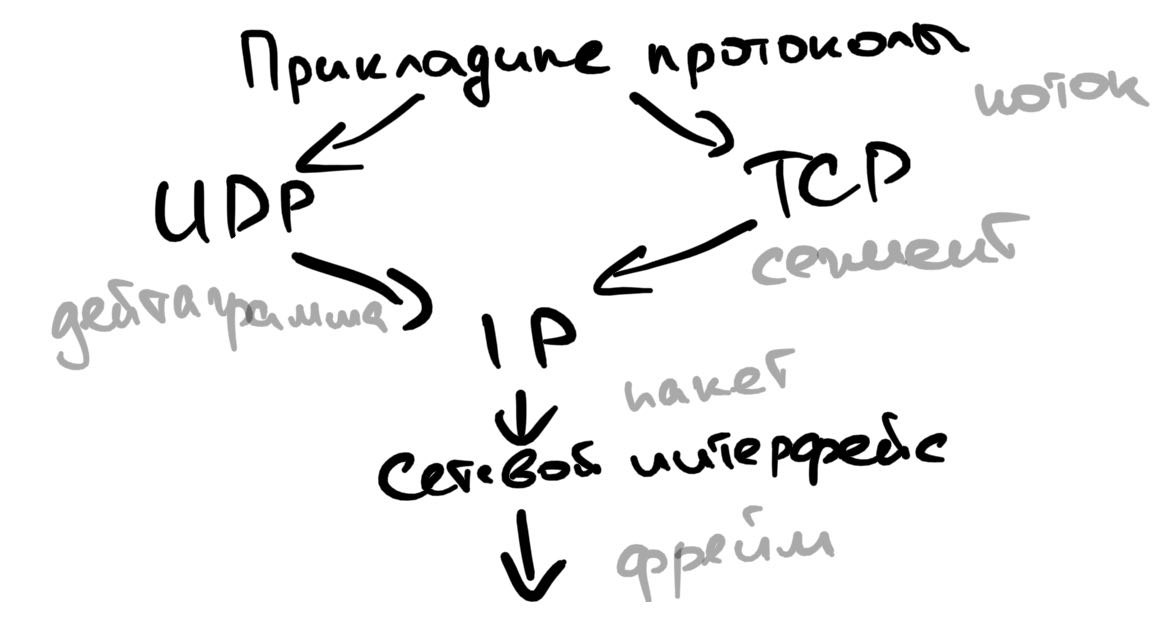 Прикладные протоколы
поток
UDP
TCP
сегмент
дейтаграмма
IP
пакет
Сетевой интерфейс
фрейм